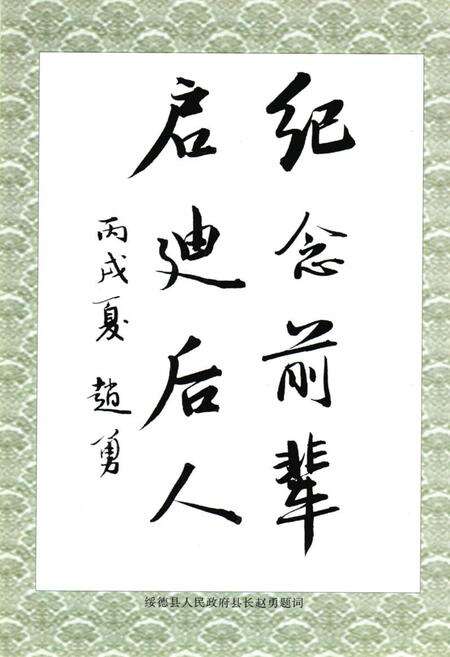 纪念前辈
启迪后人
丙戌夏 趙勇
绥德县人民政府县长赵勇题词